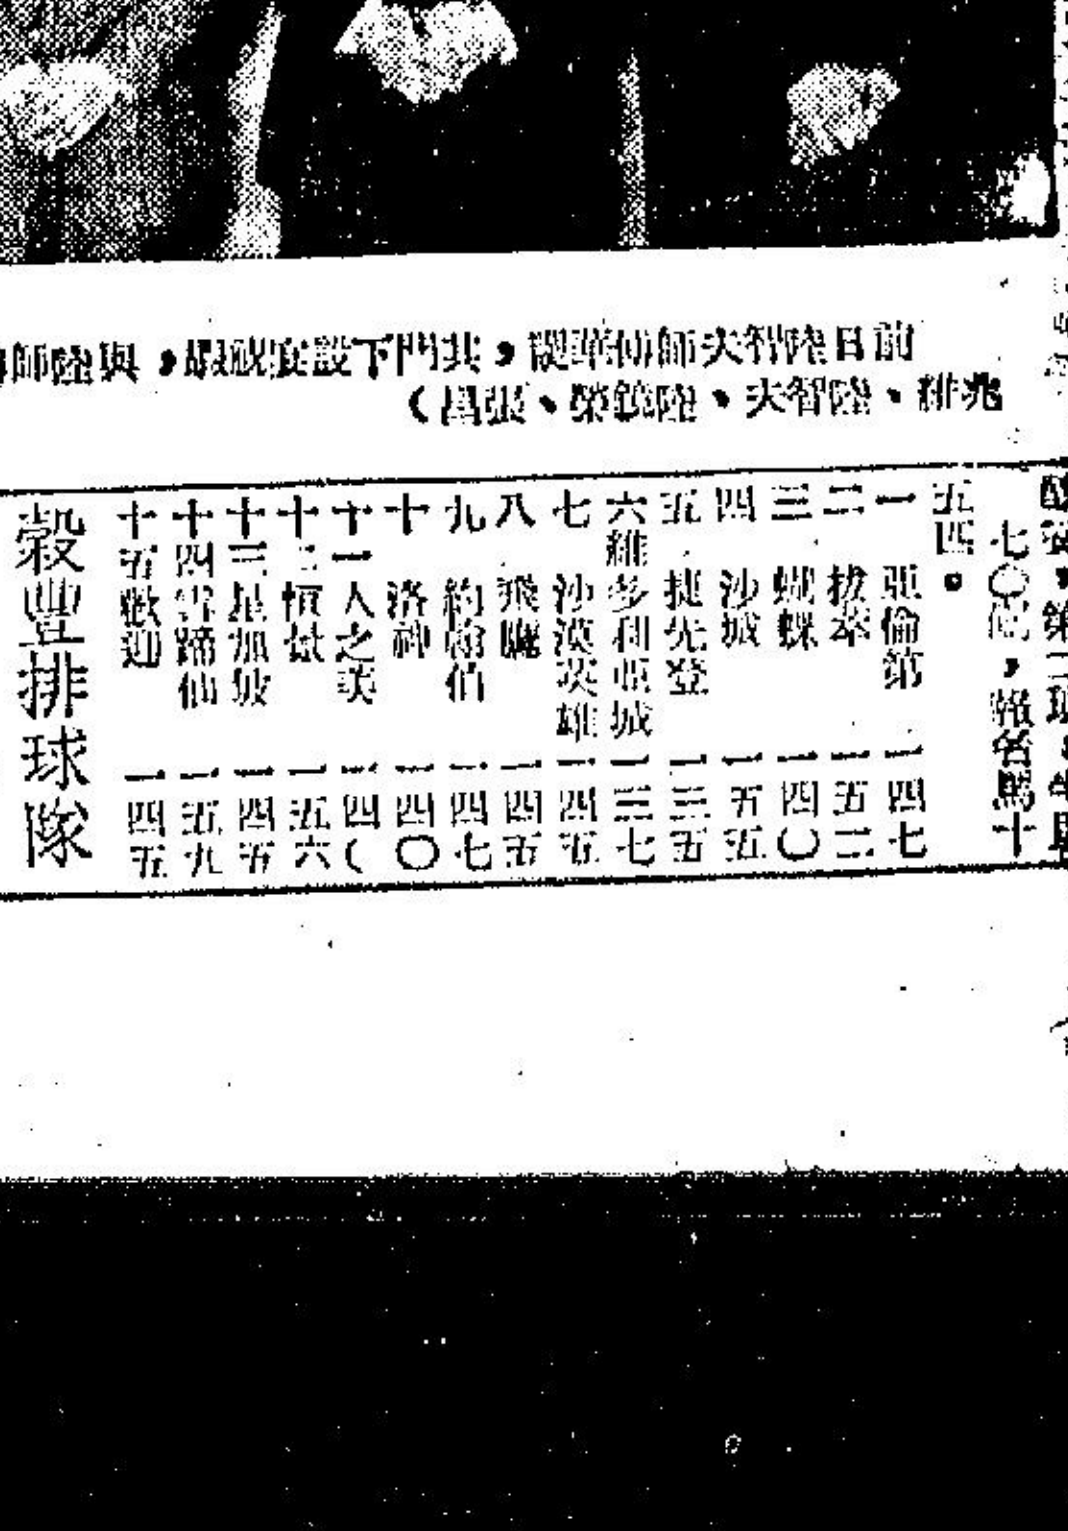 前日陸智夫師傅華誕，其門下設宴祝嘏，與陸師
兆緋、陸智夫、陸鏡榮、張昌）
第三班
七〇碼，報名馬十
五匹。
一 亞倫第 一四七
二 拔萃 一五二
三 蝴蝶 一四〇
四 沙城 一五五
五 捷先登 一三五
六 維多利亞城 一三七
七 沙漠英雄 一四五
八 飛 一四五
九 約翰伯 一四七
十 洛神 一四〇
十一 人之美 一四
十二 恒 一五六
十三 星加坡 一四五
十四 雲蹄仙 一五九
十五 歡迎 一四五
穀豐排球隊